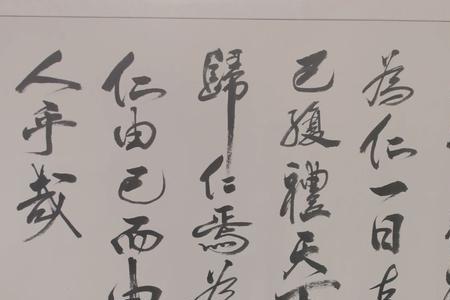 為仁一日克
己復禮天下
歸仁焉為
仁由己而由
人乎哉